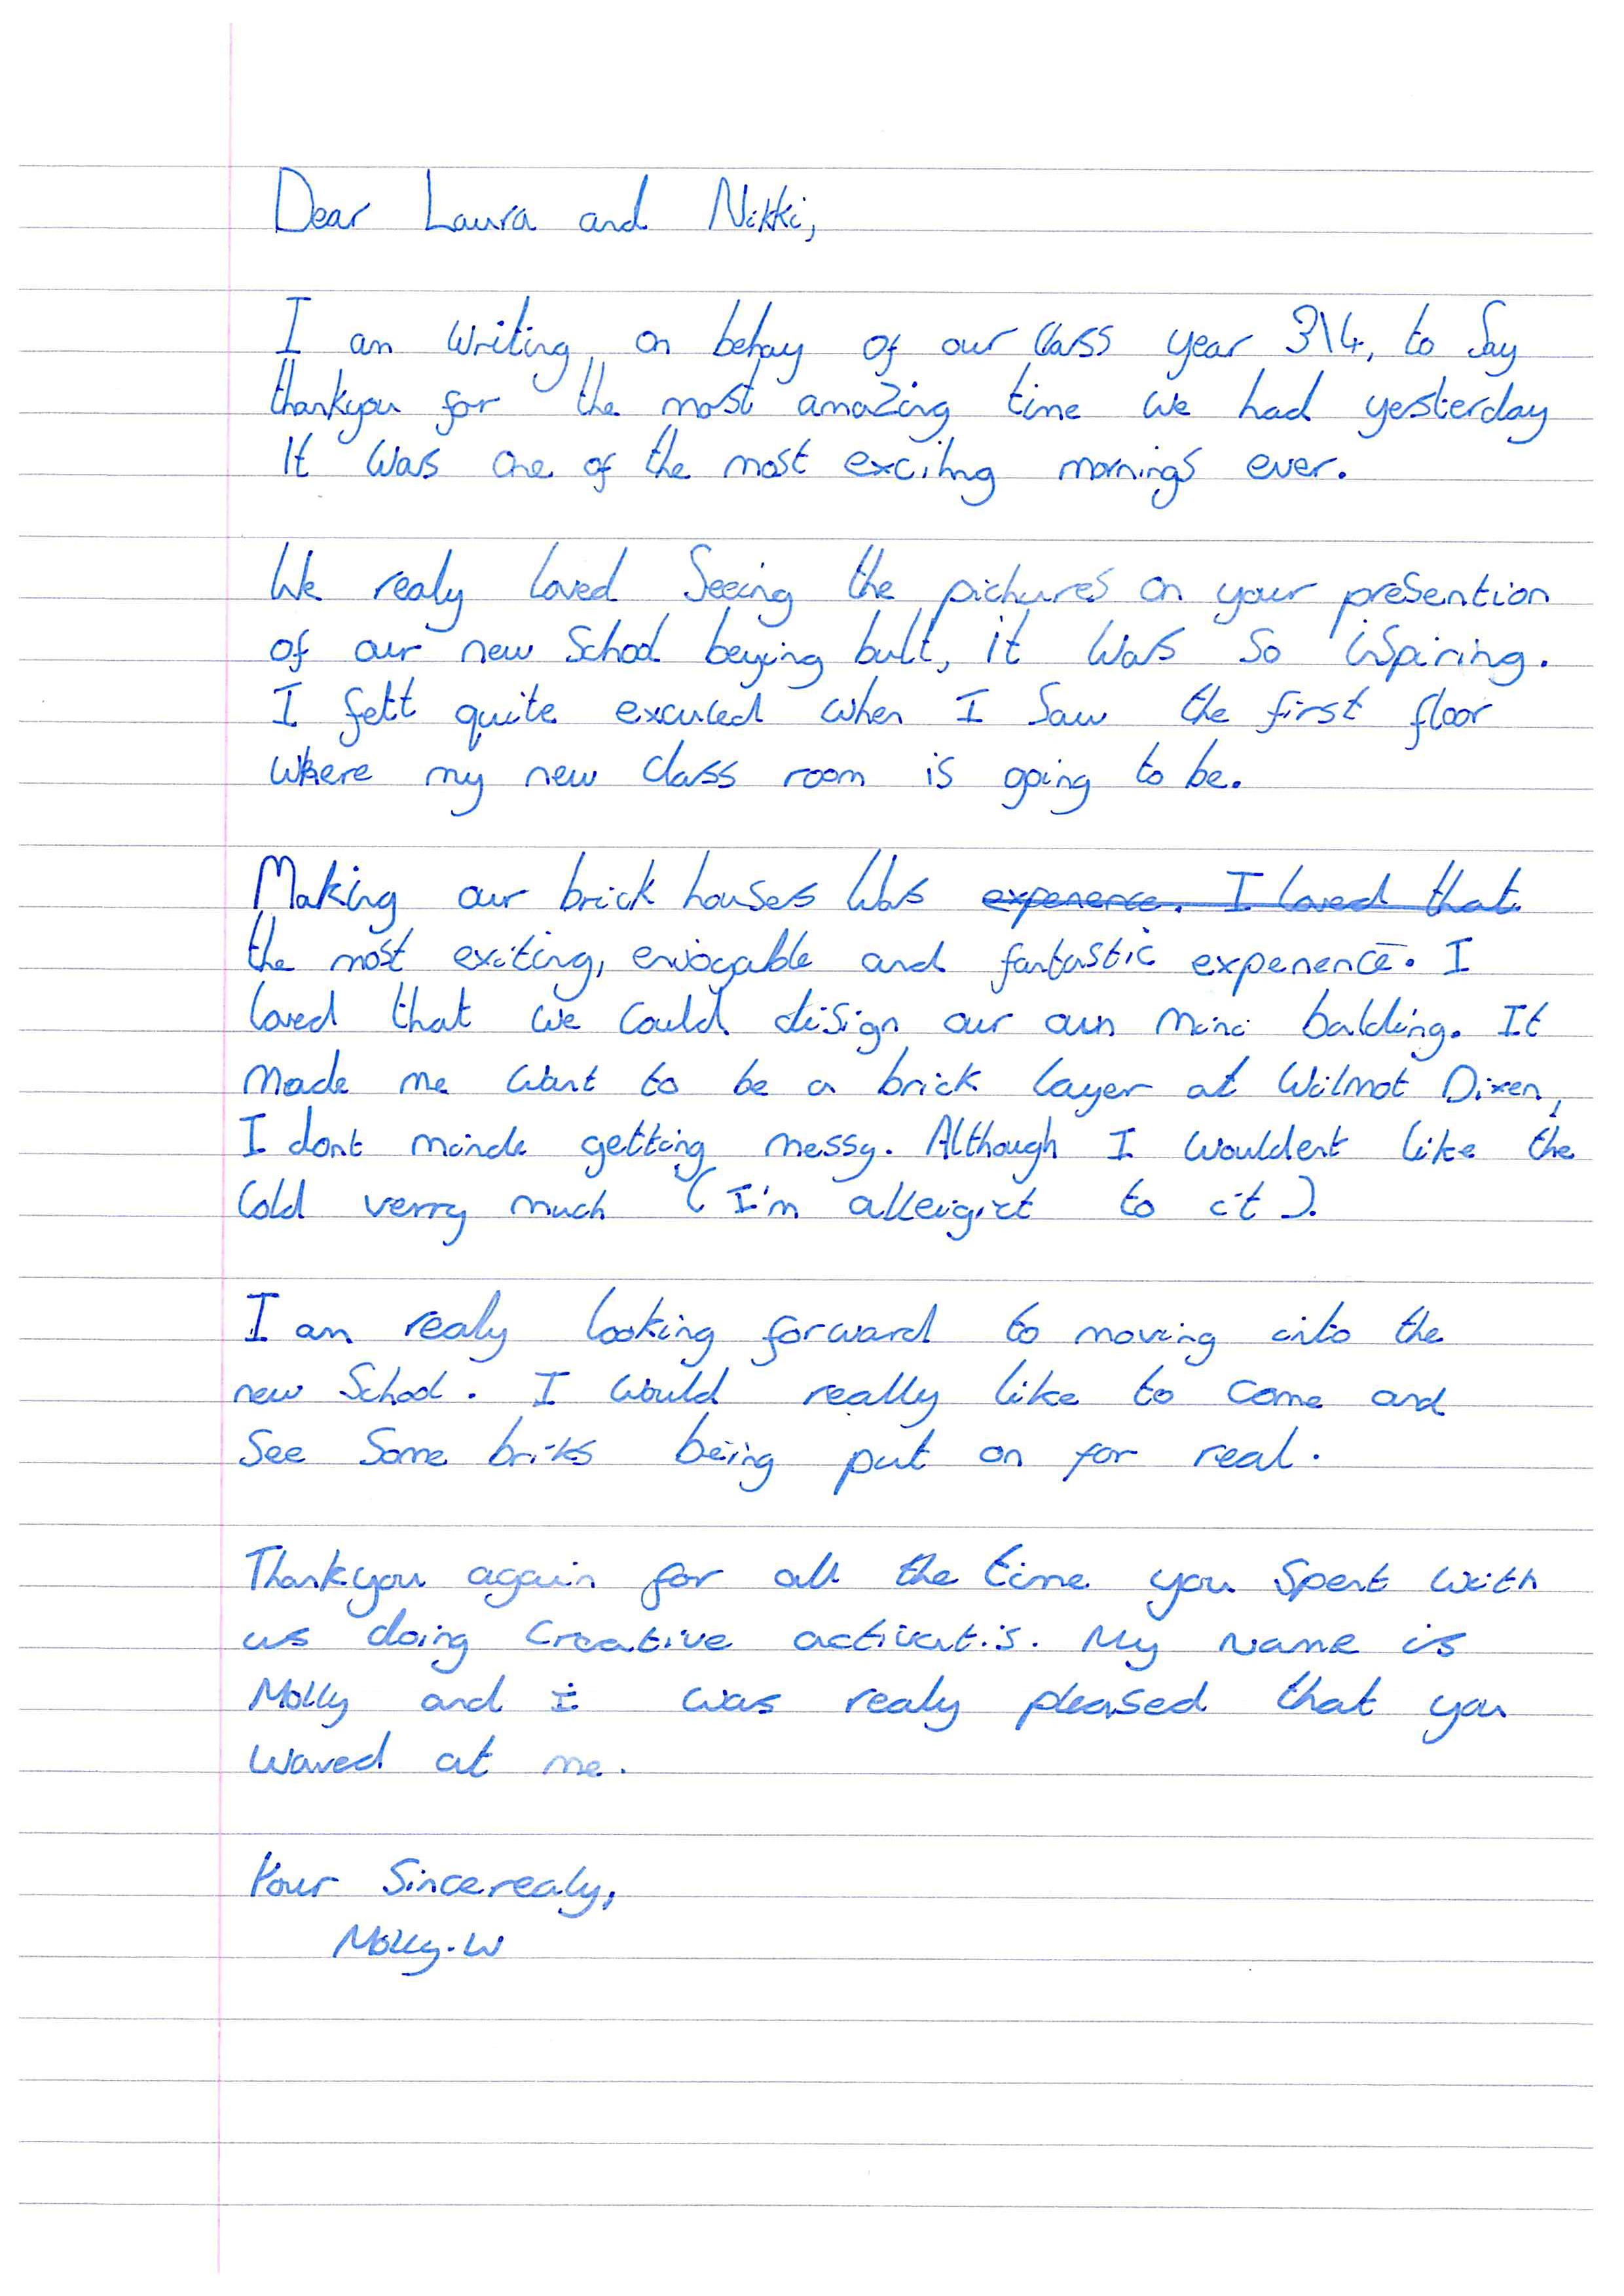 Dear Laura and Nikki,
I am writing on behay of our class year 3\4, to Say
thankyou for the most amazing time we had yesterday
It was one of the most exciting mornings ever.
We realy loved Seeing the pichures on your presention
of our new School beying bult, it was so ispiring.
I felt quite exculed when I Saw the first floor
where my new class room is going to be.
Making our brick houses was experience. I loved that
the most exciting, enjoyable and fantastic experience. I
loved that we could disign our own mini balding. It
made me want to be a brick layer at Wilmot Dixen,
I dont minde getting messy. Although I wouldent like the
cold verry much (I'm alleigict to it).
I am realy looking forward to moving into the
new School. I would really like to come and
See Some briks being put on for real.
Thankyou again for all the time you Spent with
us doing Creative activatis. My name is
Molly and i was realy pleased that you
waved at me.
Your Sincerealy,
Molly.W